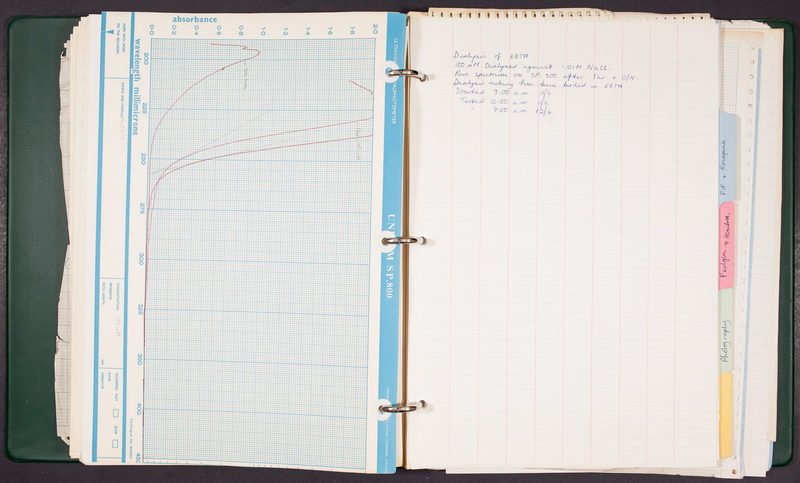 absorbance
0·0 0·2 0·4 0·6 0·8 1·0 1·2 1·4 1·6 1·8 2·0
wavelength millimicrons
200
225
250
275
300
325
350
400
450
ON THE RECORDER
CONCENTRATION
REFERENCE
PATH LENGTH
DATE
OPERATOR
FAST
SLOW
UNICAM SP.800
Dialysis of EDTA
100 mM Dialysed against ·01M NaCl.
Run spectrum on SP 800 after 1hr + O/N
Dialysis tubing has been boiled in EDTA
Started 9.00 a.m. 11/6
Tested 10.00 a.m. 11/6
" 9.00 a.m. 12/6.
Feulgen +
Photography